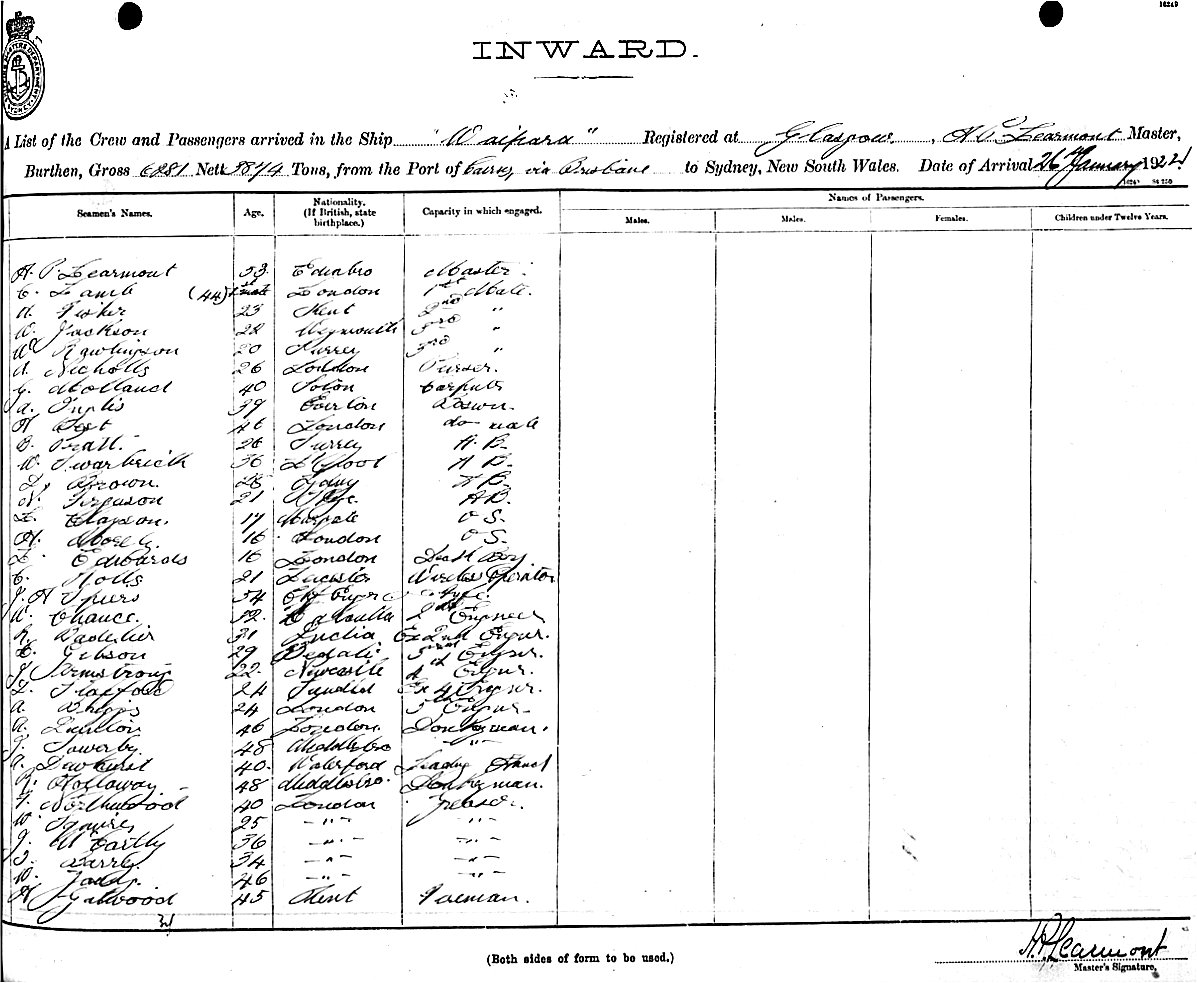 16249
INWARD.
A List of the Crew and Passengers arrived in the Ship "Waipara" Registered at Glasgow, Learmont Master,
Burthen, Gross 6281 Nett 3874 Tons, from the Port of via Brisbane to Sydney, New South Wales. Date of Arrival 26th January 1922
Seamen's Names. Age. Nationality. (If British, state birthplace.) Capacity in which engaged. Names of Passengers.
Males. Males. Females. Children under Twelve Years.
Learmont 53 Edinbro Master
C. Lamb (44) London 1st Mate.
Fisher 23 Kent 2nd "
W. Jackson 22 Weymouth 3rd "
W. Rawlingson 20 Surrey 3rd "
Nicholls 26 London Purser.
Molland 40 Soton Carpenter
A. Inglis 39 Boswn.
46 London do mate
B. Pratt. 26 Surrey A.B.
W. Swarbrick 36 L'Pool A B.
Brown. A B.
N. Ferguson 21 A.B.
Clapson. 17 Margate O S.
16 London O S.
Edwards 16 London Deck Boy
C. 21 Leicester Wireless Operator
Spiers 54
Chance. 32. Calcutta 2nd Engineer
31 India Ex 2nd Engnr.
Gibson 29 Bedale 3rd Engnr.
J. Armstrong 22. Newcastle 4th Engnr.
24 Sundld Ex 4 Engnr.
A. 24 London 5th Engnr.
A. 46 London. Donkeyman.
Sowerby. 48 Middlesbro " -
A. Dewhurst 40. Waterford Leading Hand
R. Holloway 48 Middlesbro. Donkeyman.
Northwood 40 London Greaser.
W. Squires 25 - " - - " -
J. McCartly 36 - " - - " -
Barry 34 - " - - " -
46 - " - - " -
H. Gatwood 45 Kent Fireman.
(Both sides of form to be used.)
Learmont
Master's Signature.